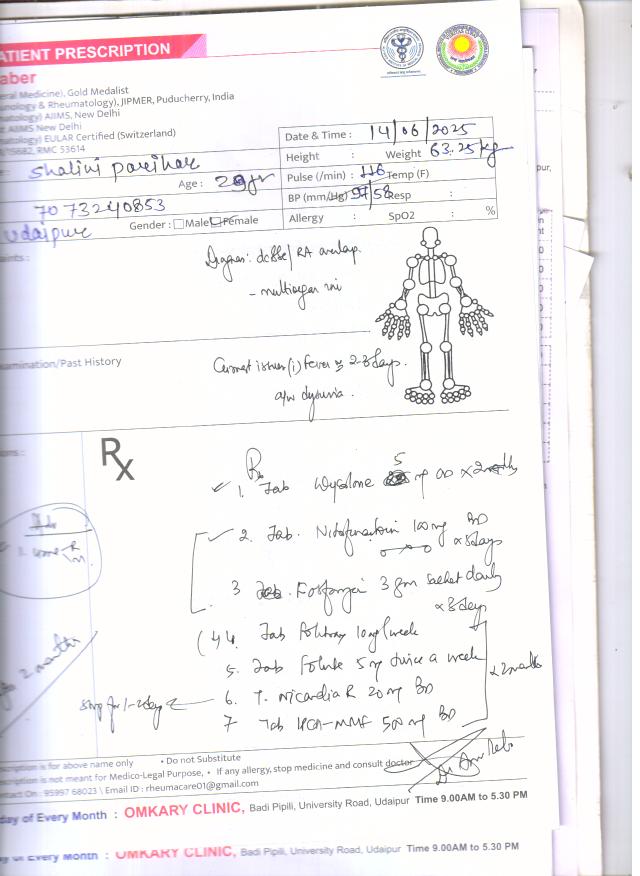 ATIENT PRESCRIPTION
aber
eral Medicine), Gold Medalist
unology & Rheumatology), JIPMER, Puducherry, India
matology) AIIMS, New Delhi
AIIMS New Delhi
matology) EULAR Certified (Switzerland)
RMC 53614
Shalini Parihar
Age : 29yr
7073240853
Udaipur
Gender : Male Female
Date & Time : 14/06/2025
Height : Weight 63.25kg
Pulse (/min) : 116 Temp (F)
BP (mm/Hg) 97/58 Resp :
Allergy : SpO2 : %
aints :
Diagnosis: dcSSc/RA overlap.
- multiorgan
xamination/Past History
Current issues (i) fever x 2-3 days.
a/w dysuria.
Rx
Rx
1. Tab Wysolone 5 mg OD x 2 months
2. Tab. Nitrofurantoin 100 mg BD
x 8 days
3 Tab. Fosfomycin 3 gm sachet daily
x 8 days
Tab Folitrax 10mg/week
5. Tab Folvite 5 mg twice a week
x 2 months
stop for 1-2 days
6. T. Nicardia R 20 mg BD
7 Tab MMF 500 mg BD
1. Urine R/M
2 months
Dr
scription is for above name only • Do not Substitute
escription is not meant for Medico-Legal Purpose, • If any allergy, stop medicine and consult doctor
ntact On : 95997 68023 \ Email ID : rheumacare01@gmail.com
day of Every Month : OMKARY CLINIC, Badi Pipili, University Road, Udaipur Time 9.00AM to 5.30 PM
y of Every Month : OMKARY CLINIC, Badi Pipili, University Road, Udaipur Time 9.00AM to 5.30 PM